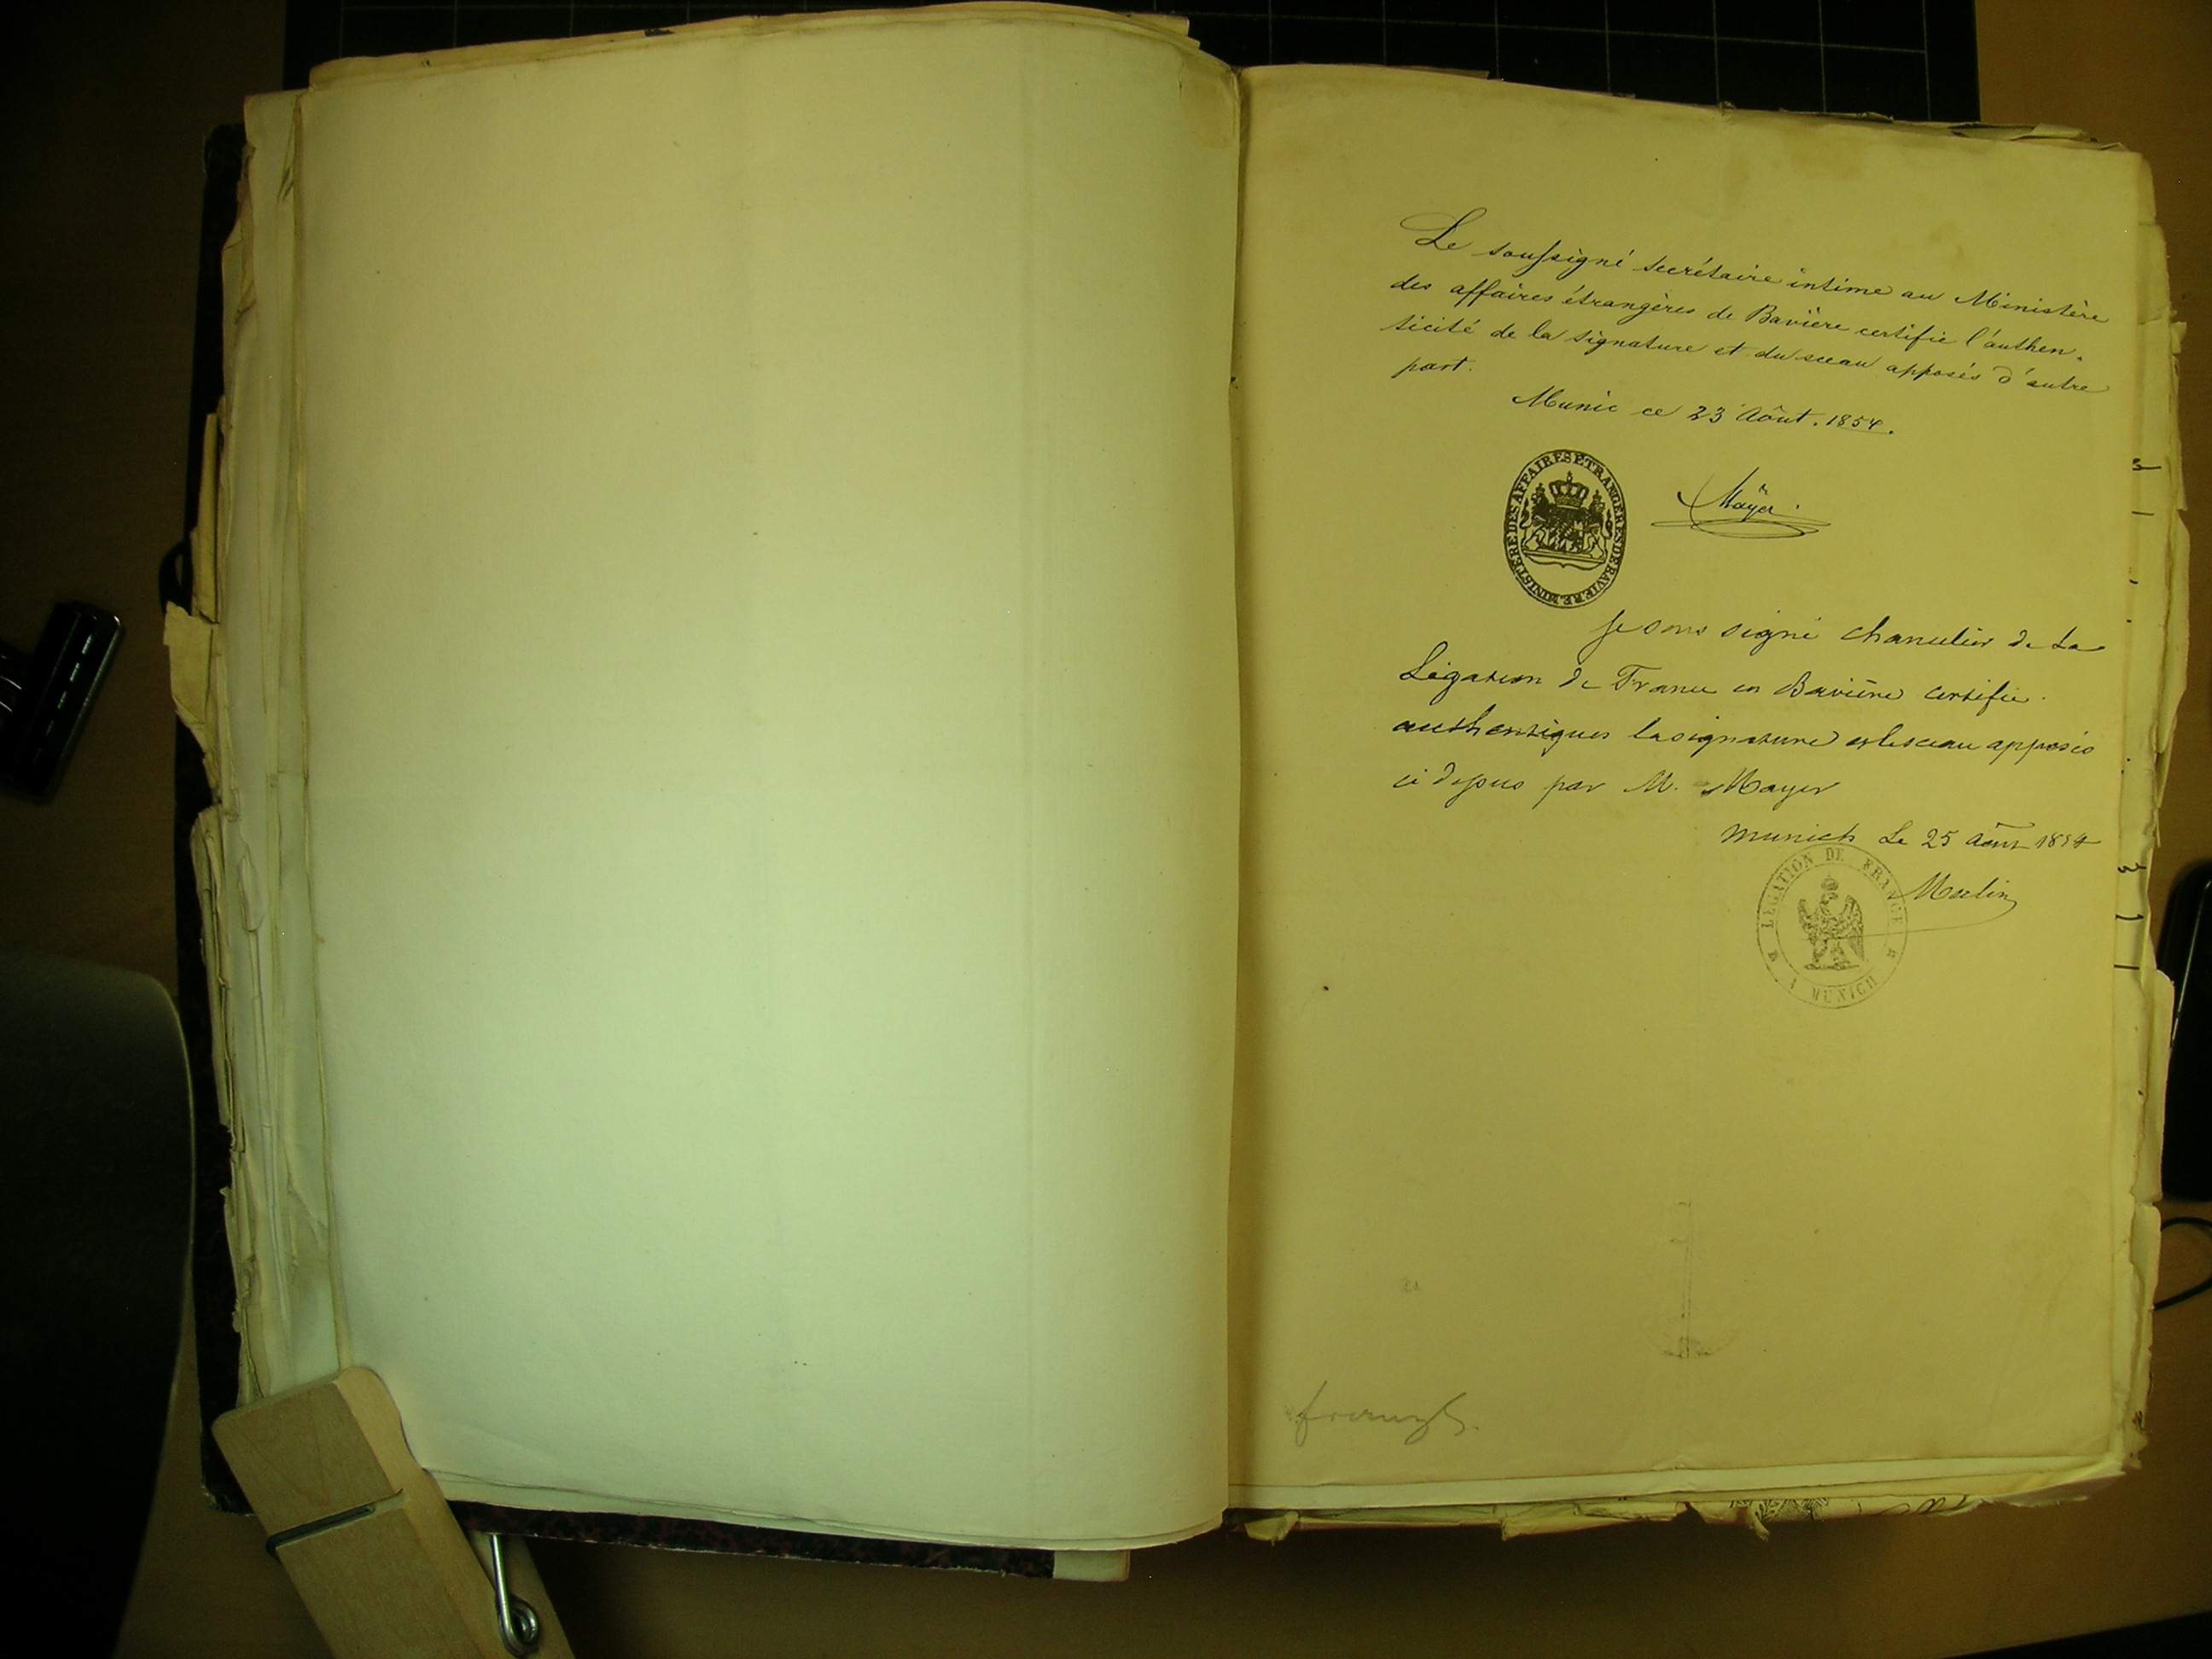 Le soussigné secrétaire intime au Ministère
des affaires étrangères de Bavière certifie l'authen-
ticité de la signature et du sceau apposés d'autre
part.
Munic ce 23 Août. 1854.
MINISTERE DES AFFAIRES ETRANGERES DE BAVIERE
Mayer.
Je sous signé chancelier de la
Légation de France en Bavière certifie
authentiques la signature et le sceau apposés
ci dessus par M. Mayer
Munich Le 25 août 1854
LÉGATION DE FRANCE
A MUNICH